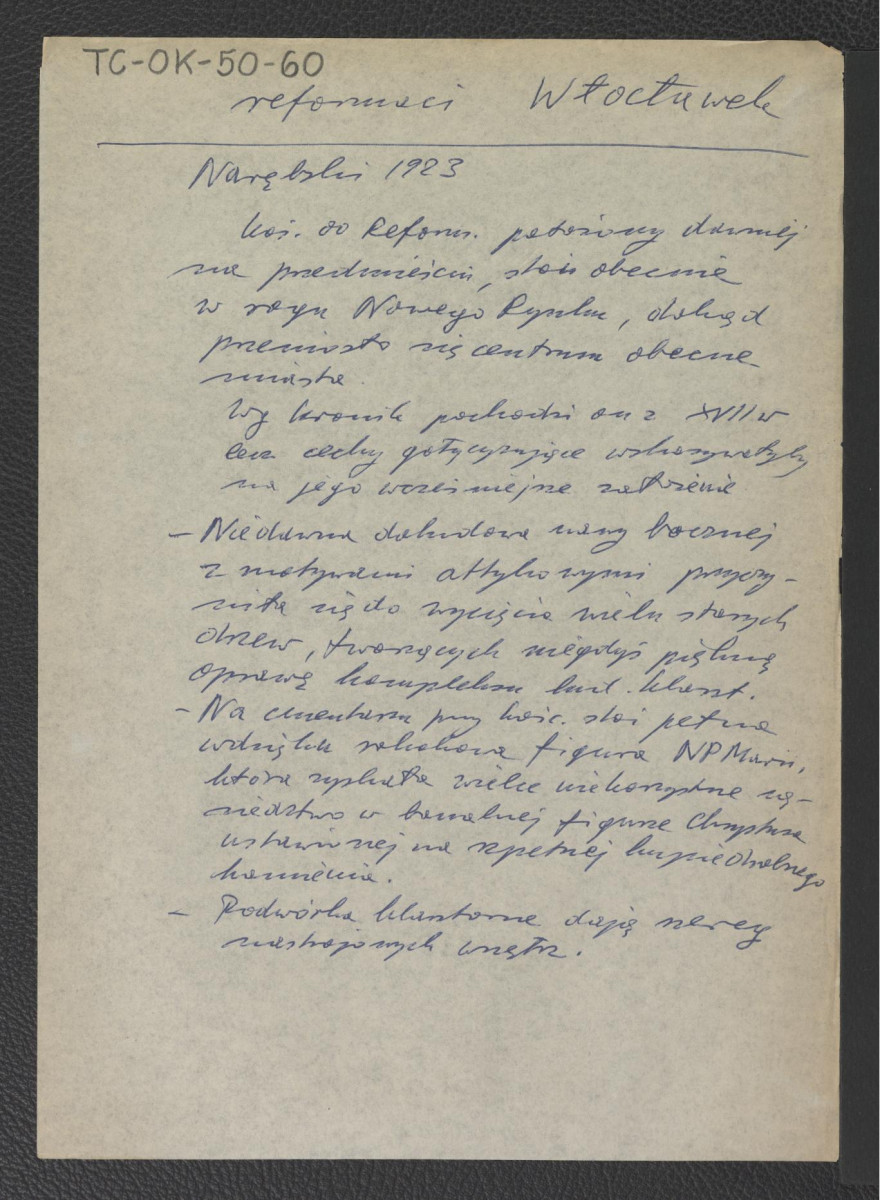 TC-OK-50-60
reformaci Włocławek
Narębski 1923
Koś. oo Reform. położony dawniej
na przedmieściu, stoi obecnie
w rogu Nowego Rynku, dokąd
przeniosło się centrum obecne
miasta.
Wg kronik pochodzi on z XVII w
lecz cechy gotycyzujące wskazywałyby
na jego wcześniejsze założenie
– Niedawna dobudowa nawy bocznej
z motywami attykowymi przyczy-
niła się do wycięcia wielu starych
drzew, tworzących niegdyś piękną
oprawę kompleksu bud. klaszt.
– Na cmentarzu przy kośc. stoi pełna
wdzięku rokokowa figura NP Marii,
która zyskała wielce niekorzystne są-
siedztwo w banalnej figurze Chrystusa
ustawionej na szpetnej kupie okrągłego
kamienia.
– Podwórka klasztorne dają szereg
nastrojowych wnętrz.